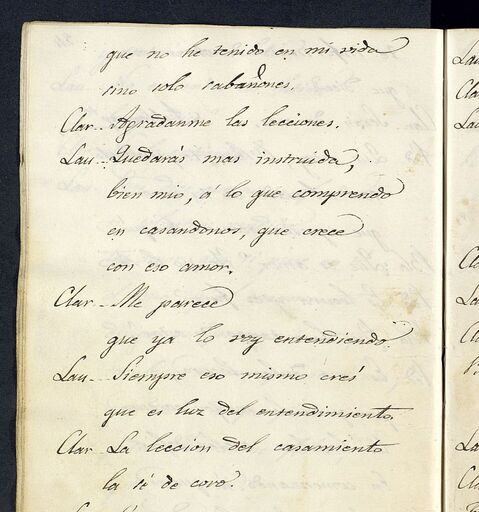 que no he tenido en mi vida
sino solo cabañones.
Clar. Agradanme las lecciones.
Lau. Quedarás mas instruida,
bien mio, á lo que comprendo
en casandonos, que crece
con eso amor.
Clar. Me parece
que ya lo voy entendiendo.
Lau. Siempre eso mismo crei
que es luz del entendimiento.
Clar. La leccion del casamiento
la sé de coro.
Lau
Cla
Lau
Cla
La
Cla
La
Cla